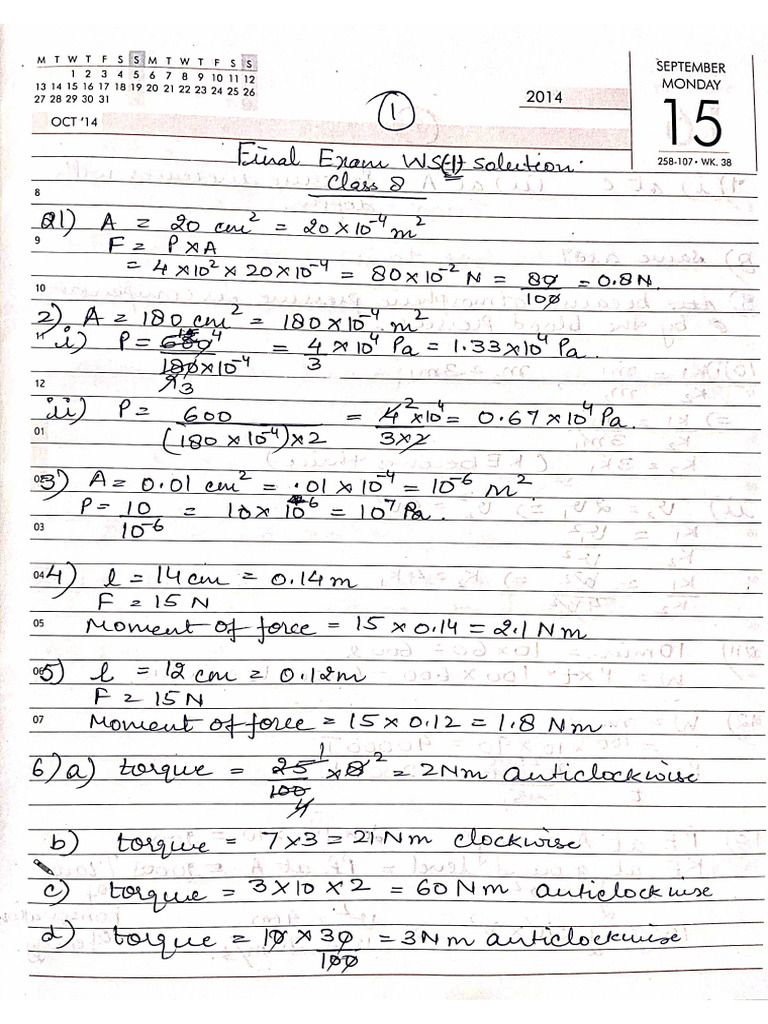 M T W T F S S M T W T F S S
1 2 3 4 5 6 7 8 9 10 11 12
13 14 15 16 17 18 19 20 21 22 23 24 25 26
27 28 29 30 31
OCT '14
2014
SEPTEMBER
MONDAY
15
258-107 • WK. 38
1
Final Exam WS(1) Solution.
Class 8
8
Q1) A = 20 cm² = 20 × 10⁻⁴ m²
9
F = P × A
= 4 × 10² × 20 × 10⁻⁴ = 80 × 10⁻² N = 80/100 = 0.8 N.
10
2) A = 180 cm² = 180 × 10⁻⁴ m²
11
i) P = 600/180×10⁻⁴ = 4/3 × 10⁴ Pa = 1.33 × 10⁴ Pa.
12
ii) P = 600/(180 × 10⁻⁴) × 2 = 4² × 10⁴/3×2 = 0.67 × 10⁴ Pa.
01
02
3) A = 0.01 cm² = .01 × 10⁻⁴ = 10⁻⁶ m².
P = 10/10⁻⁶ = 10 × 10⁶ = 10⁷ Pa.
03
04
4) l = 14 cm = 0.14 m
F = 15 N
05
Moment of force = 15 × 0.14 = 2.1 Nm
06
5) l = 12 cm = 0.12m
F = 15 N
07
Moment of force = 15 × 0.12 = 1.8 Nm
6) a) torque = 25/100 × 8 = 2 Nm anticlockwise
b) torque = 7 × 3 = 21 Nm clockwise
c) torque = 3 × 10 × 2 = 60 Nm anticlockwise
d) torque = 10 × 30/100 = 3 Nm anticlockwise